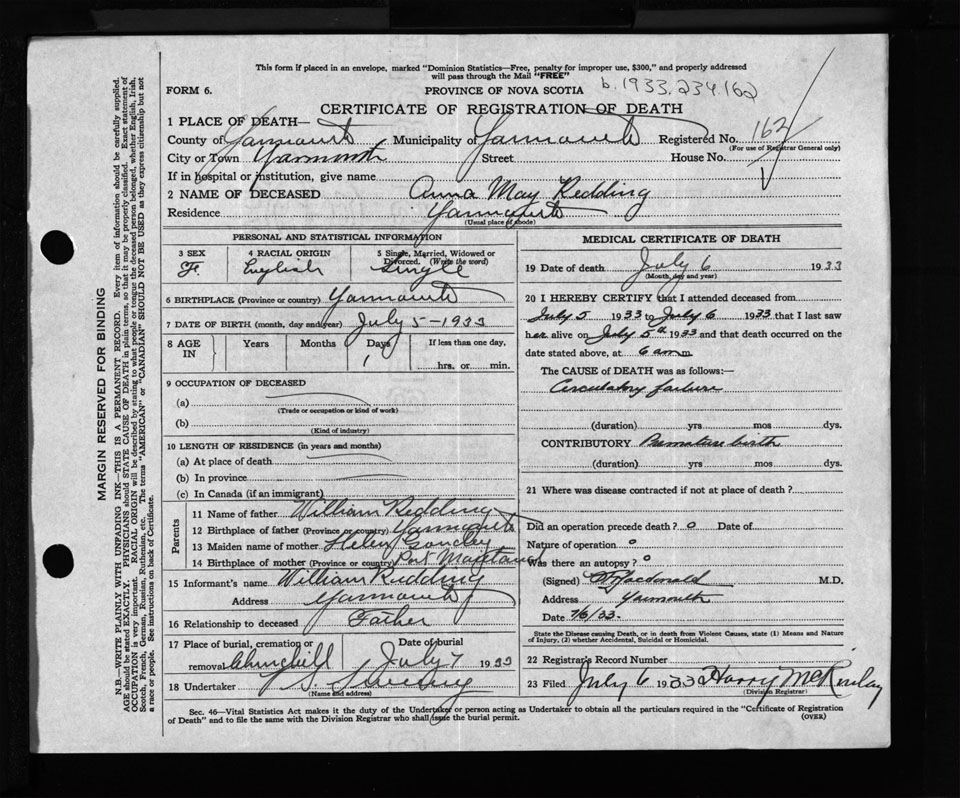 This form if placed in an envelope, marked "Dominion Statistics—Free, penalty for improper use, $300," and properly addressed
will pass through the Mail "FREE"
FORM 6.
PROVINCE OF NOVA SCOTIA
b. 1933. 234.162
CERTIFICATE OF REGISTRATION OF DEATH
1 PLACE OF DEATH—
County of Yarmouth Municipality of Yarmouth Registered No. 162
(For use of Registrar General only)
City or Town Yarmouth Street House No.
If in hospital or institution, give name
2 NAME OF DECEASED Anna May Redding
Residence Yarmouth
(Usual place of abode)
PERSONAL AND STATISTICAL INFORMATION
3 SEX 4 RACIAL ORIGIN 5 Single, Married, Widowed or
Divorced. (Write the word)
F. English Single
6 BIRTHPLACE (Province or country) Yarmouth
7 DATE OF BIRTH (month, day and year) July 5 - 1933
8 AGE IN Years Months Days If less than one day,
1 hrs. or min.
9 OCCUPATION OF DECEASED
(a)
(Trade or occupation or kind of work)
(b)
(Kind of industry)
10 LENGTH OF RESIDENCE (in years and months)
(a) At place of death
(b) In province
(c) In Canada (if an immigrant)
Parents
11 Name of father William Redding
12 Birthplace of father (Province or country) Yarmouth
13 Maiden name of mother Helen
14 Birthplace of mother (Province or country) Port Maitland
15 Informant's name William Redding
Address Yarmouth
16 Relationship to deceased Father
17 Place of burial, cremation or removal Churchill Date of burial July 7 1933
18 Undertaker V. S. Sweeny
(Name and address)
MEDICAL CERTIFICATE OF DEATH
19 Date of death July 6 1933
(Month, day and year)
20 I HEREBY CERTIFY that I attended deceased from
July 5 1933 to July 6 1933 that I last saw
her alive on July 5th 1933 and that death occurred on the
date stated above, at 6 am m.
The CAUSE of DEATH was as follows:—
Circulatory failure
(duration) yrs mos dys.
CONTRIBUTORY Premature birth
(duration) yrs mos dys.
21 Where was disease contracted if not at place of death ?
Did an operation precede death ? o Date of
Nature of operation o
Was there an autopsy ? o
(Signed) Macdonald M.D.
Address Yarmouth
Date 7/6/33.
State the Disease causing Death, or in death from Violent Causes, state (1) Means and Nature
of Injury, (2) whether Accidental, Suicidal or Homicidal.
22 Registrar's Record Number
23 Filed July 6 1933 Harry McKinlay
(Division Registrar)
Sec. 46—Vital Statistics Act makes it the duty of the Undertaker or person acting as Undertaker to obtain all the particulars required in the "Certificate of Registration
of Death" and to file the same with the Division Registrar who shall issue the burial permit.
(OVER)
MARGIN RESERVED FOR BINDING
N.B.—WRITE PLAINLY WITH UNFADING INK—THIS IS A PERMANENT RECORD. Every item of information should be carefully supplied.
AGE should be stated EXACTLY. PHYSICIANS should STATE CAUSE OF DEATH in plain terms, so that it may be properly classified. Exact statement of
OCCUPATION is very important. RACIAL ORIGIN will be described by stating to what people or tongue the deceased person belonged, whether English, Irish,
Scotch, French, German, Russian, Ruthenian, etc. The terms "AMERICAN" or "CANADIAN" SHOULD NOT BE USED as they express citizenship but not
a race or people. See instructions on back of Certificate.